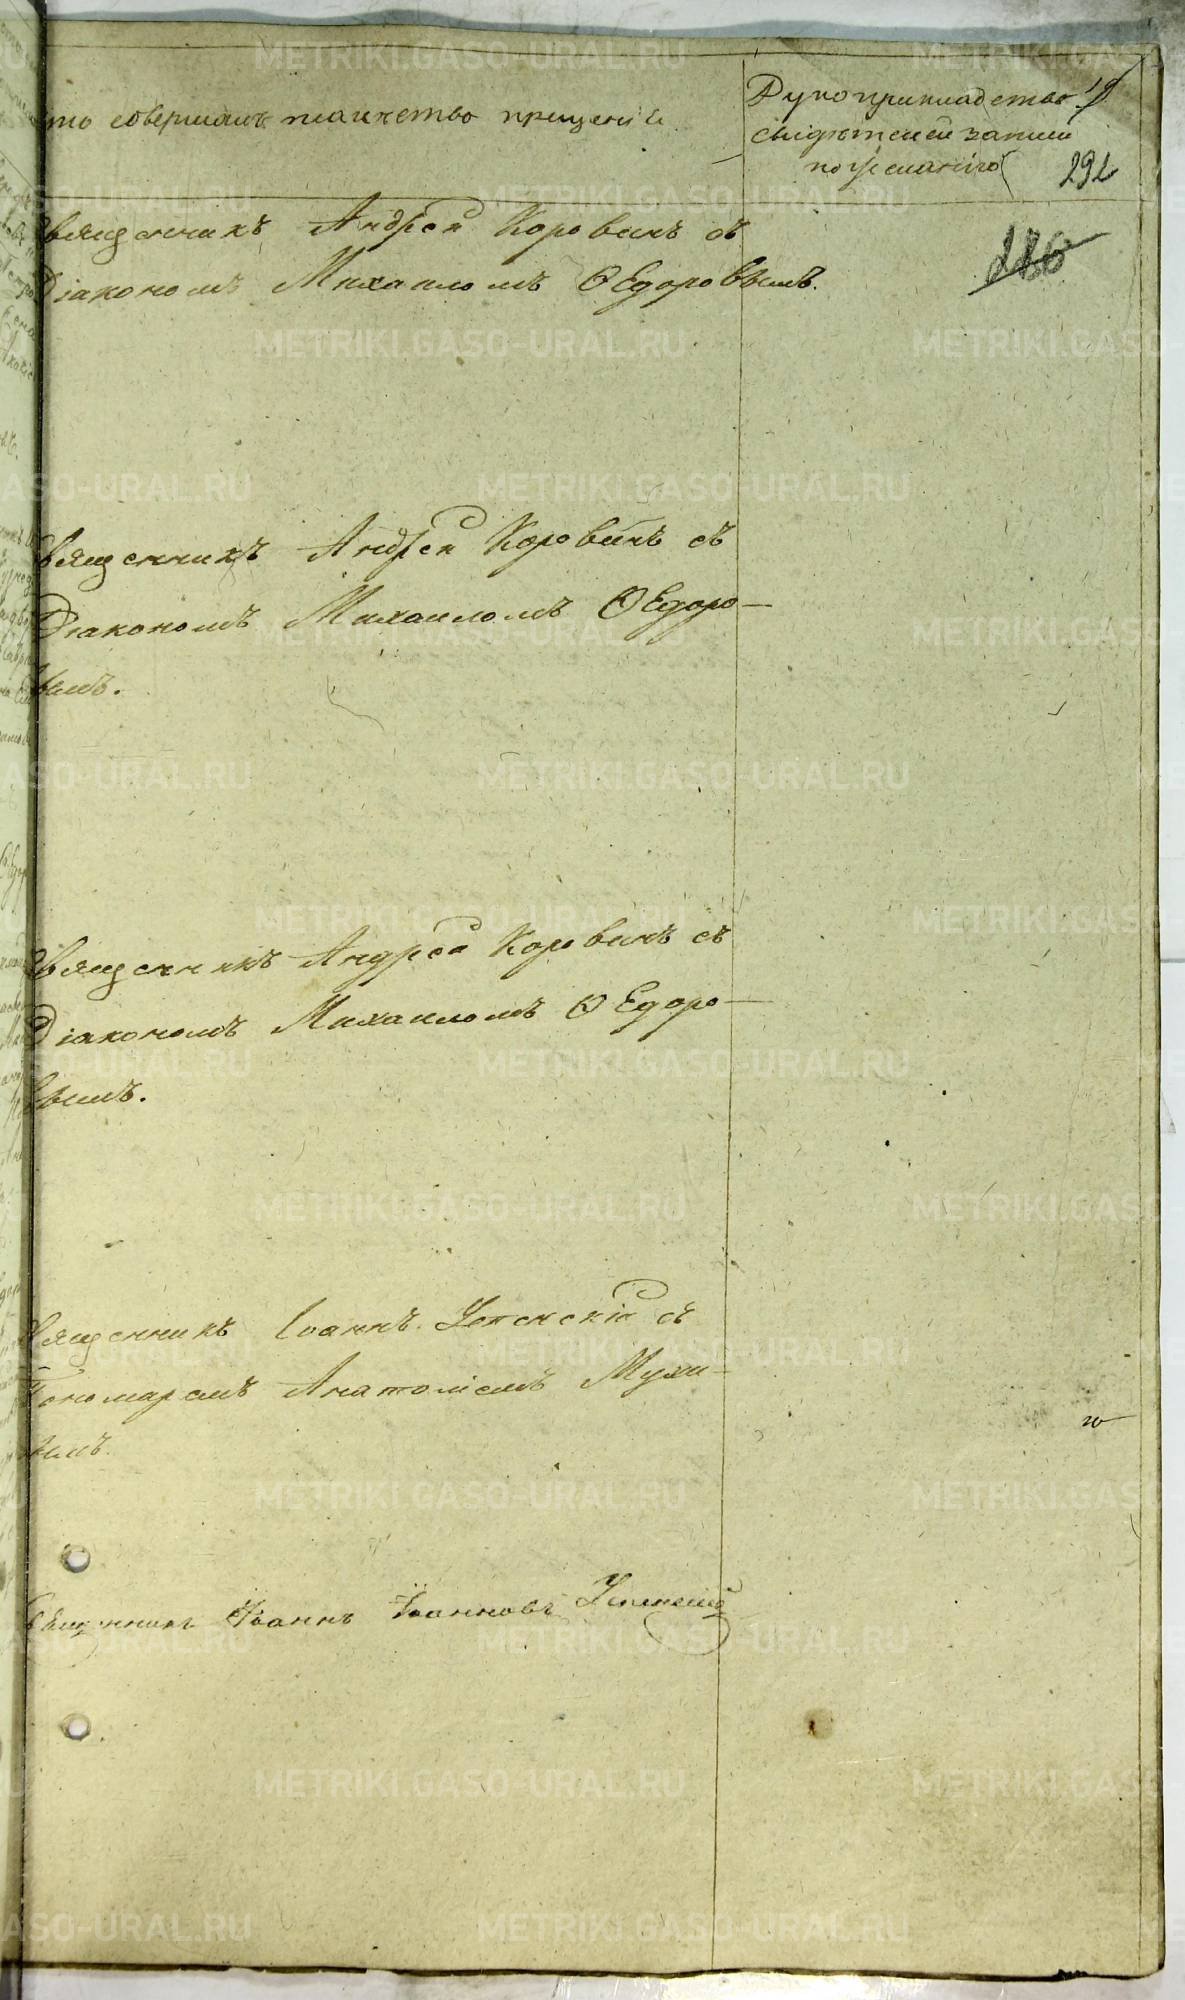 то совершалъ таинство крещенія
Рукоприкладство
свидѣтелей записи
по желанію
292
226
вященникъ Андрей Коровинъ съ
Діакономъ Михаиломъ Ѳедоровымъ.
вященникъ Андрей Коровинъ съ
Діакономъ Михаиломъ Ѳедоро—
вымъ.
вященникъ Андрей Коровинъ съ
Діакономъ Михаиломъ Ѳедоро—
вымъ.
вященникъ Іоаннъ Успенскій съ
Пономаремъ Анатоліемъ Мухи—
нымъ.
Священникъ Іоаннъ Іоанновъ Успенскій
METRIKI.GASO-URAL.RU